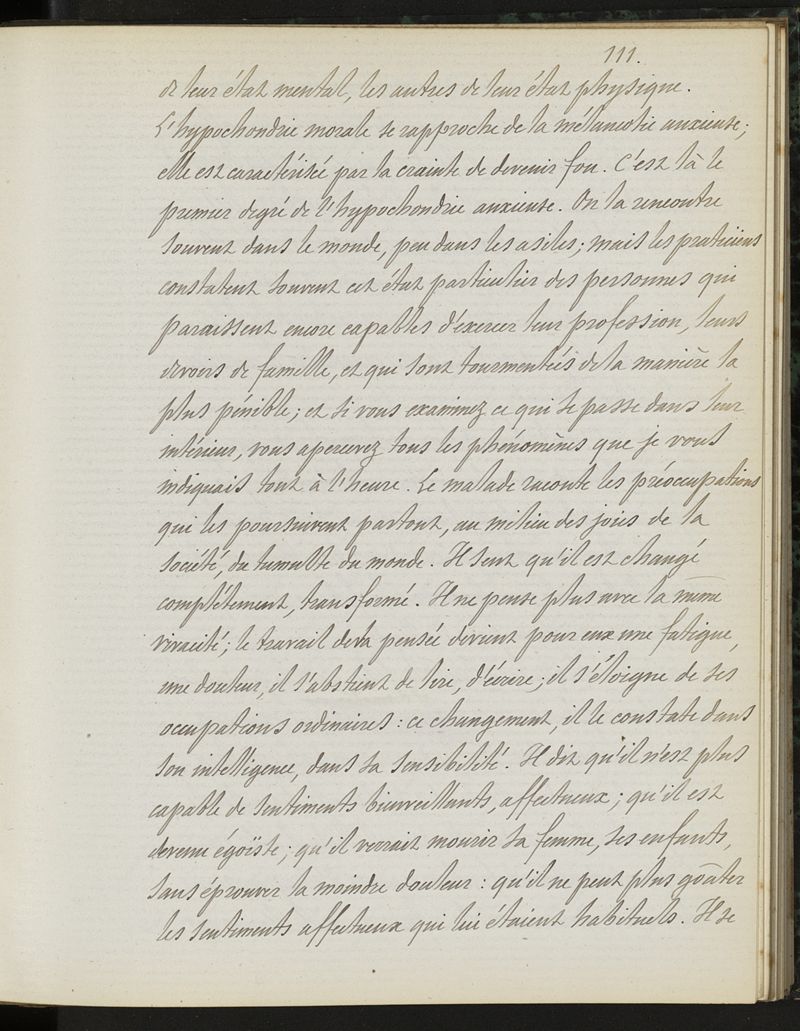 111.
de leur état mental, les autres de leur état physique.
L'hypochondrie morale se rapproche de la mélancolie anxieuse;
elle est caractérisée par la crainte de devenir fou. C'est là le
premier degré de l'hypochondrie anxieuse. On la rencontre
souvent dans le monde, peu dans les asiles; mais les praticiens
constatent souvent cet état particulier des personnes qui
paraissent encore capables d'exercer leur profession, leurs
devoirs de famille, et qui sont tourmentées de la manière la
plus pénible; et si vous examinez ce qui se passe dans leur
intérieur, vous apercevez tous les phénomènes que je vous
indiquais tout à l'heure. Le malade raconte les préoccupations
qui les poursuivent partout, au milieu des joies de la
société, du tumulte du monde. Il sent qu'il est changé
complètement, transformé. Il ne pense plus avec la même
vivacité; le travail de la pensée devient pour eux une fatigue,
une douleur, il s'abstient de lire, d'écrire; il s'éloigne de ses
occupations ordinaires: ce changement, il le constate dans
son intelligence, dans sa sensibilité. Il dit qu'il n'est plus
capable de sentiments bienveillants, affectueux; qu'il est
devenu égoïste; qu'il verrait mourir sa femme, ses enfants,
sans éprouver la moindre douleur: qu'il ne peut plus goûter
les sentiments affectueux qui lui étaient habituels. Il se